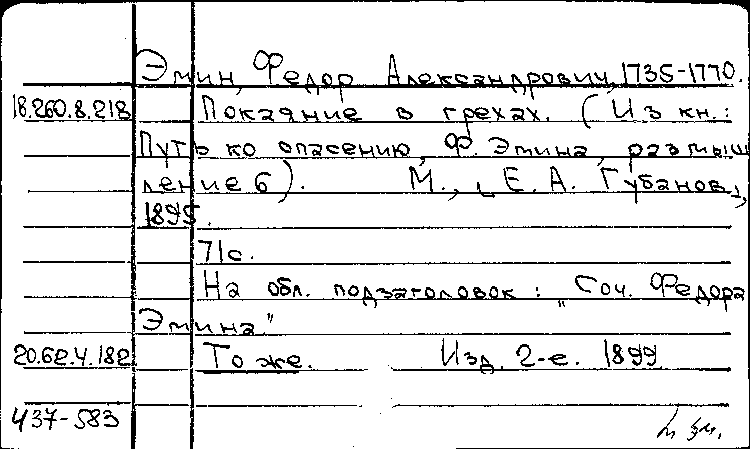 Эмин, Федор Александрович, 1735-1770.
18.260.8.218 Покаяние в грехах. (Из кн.:
Путь ко спасению, Ф. Эмина, размыш
ление 6). М., [Е. А. Губанов],
1895.
71с.
На обл. подзаголовок: „Соч. Федора
Эмина"
20.62.4.182 То же. Изд. 2-е. 1899
437-583